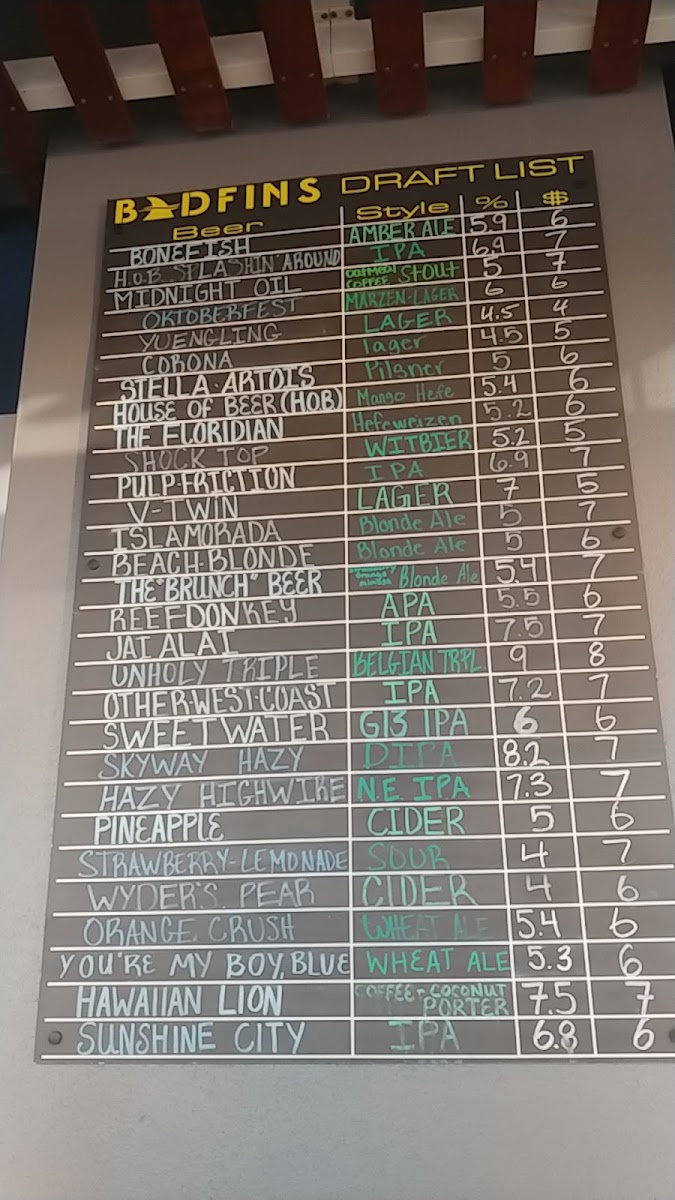 BADFINS DRAFT LIST
Beer Style % $
BONEFISH AMBER ALE 5.9 6
H.O.B. SPLASHIN' AROUND IPA 6.9 7
MIDNIGHT OIL OATMEAL COFFEE STOUT 5 7
OKTOBERFEST MARZEN-LAGER 6 6
YUENGLING LAGER 4.5 4
CORONA lager 4.5 5
STELLA ARTOIS Pilsner 5 6
HOUSE OF BEER (H.O.B) Mango Hefe 5.4 6
THE FLORIDIAN Hefeweizen 5.2 6
SHOCK TOP WITBIER 5.2 5
PULP FRICTION IPA 6.9 7
V-TWIN LAGER 7 5
ISLAMORADA Blonde Ale 5 7
BEACH-BLONDE Blonde Ale 5 6
THE "BRUNCH" BEER Orange mimosa Blonde Ale 5.4 7
REEFDONKEY APA 5.5 6
JAI ALAI IPA 7.5 7
UNHOLY TRIPLE BELGIAN TRPL. 9 8
OTHER-WEST-COAST IPA 7.2 7
SWEETWATER G13 IPA 6 6
SKYWAY HAZY DIPA 8.2 7
HAZY HIGHWIRE N.E. IPA 7.3 7
PINEAPPLE CIDER 5 6
STRAWBERRY-LEMONADE SOUR 4 7
WYDER'S PEAR CIDER 4 6
ORANGE CRUSH WHEAT ALE 5.4 6
YOU'RE MY BOY, BLUE WHEAT ALE 5.3 6
HAWAIIAN LION COFFEE + COCONUT PORTER 7.5 7
SUNSHINE CITY IPA 6.8 6